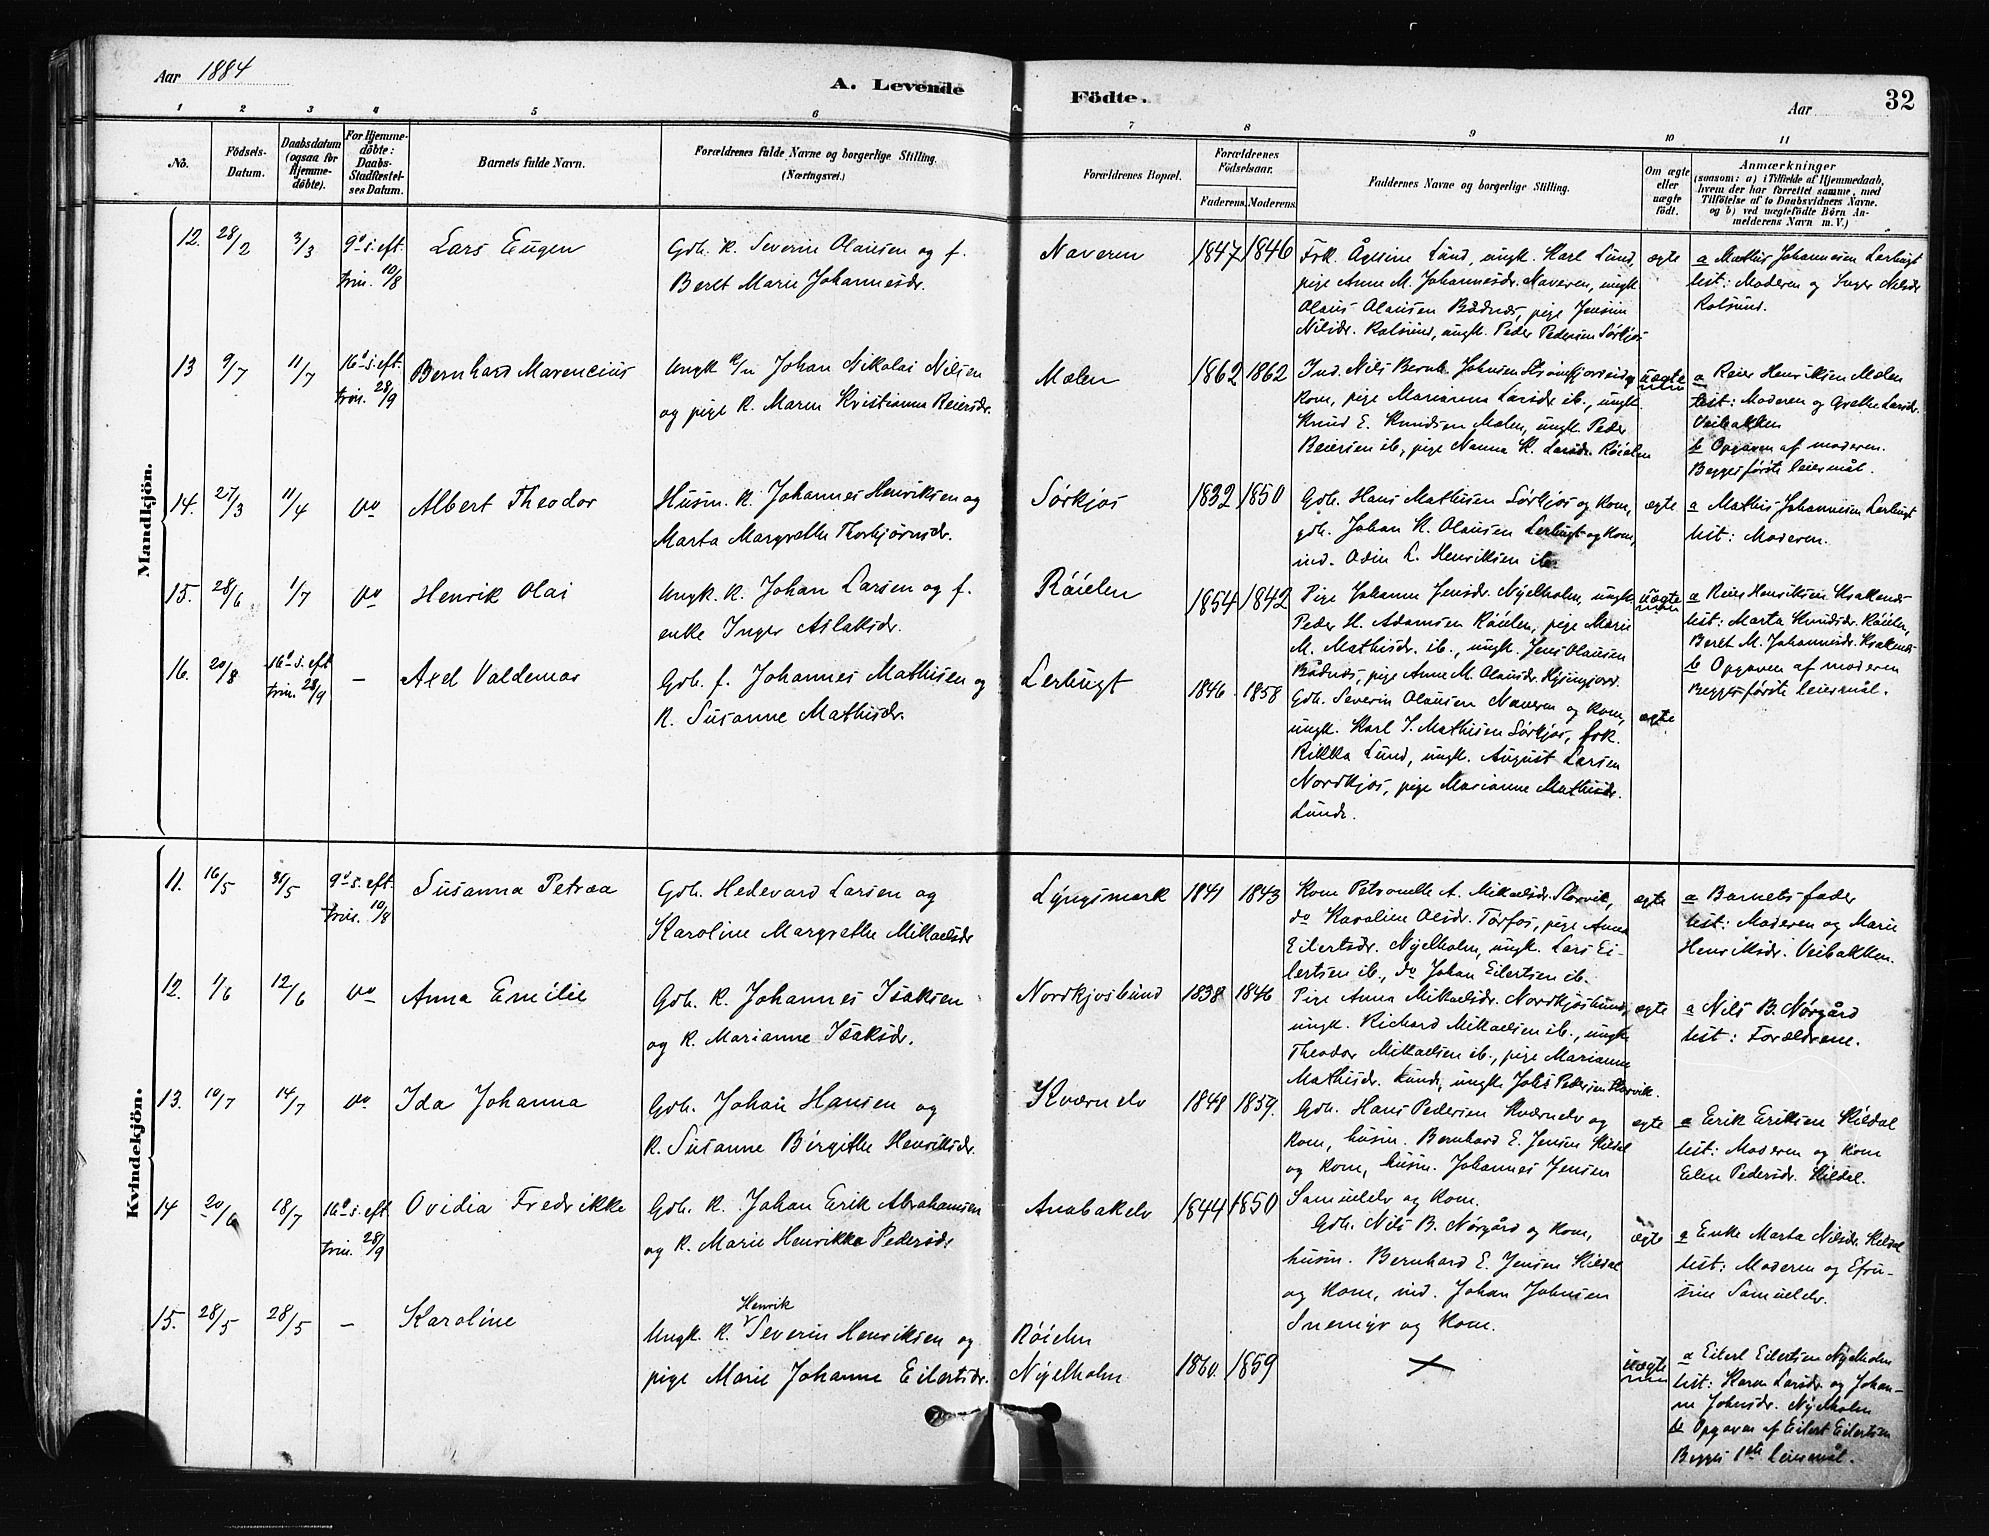 Aar 1884
A. Levende
Födte.
Aar
32
1 2 3 4 5 6 7 8 9 10 11
No.
Födsels-Datum.
Daabsdatum (ogsaa for Hjemme-döbte).
For Hjemme-döbte: Daabs-Stadfæstel-ses Datum.
Barnets fulde Navn.
Forældrenes fulde Navne og borgerlige Stilling.
(Næringsvei.)
Forældrenes Bopæl.
Forældrenes Födselsaar.
Faderens. Moderens.
Faddernes Navne og borgerlige Stilling.
Om ægte eller uægte födt.
Anmærkninger
(saasom: a) i Tilfælde af Hjemmedaab,
hvem der har forrettet samme, med
Tilföielse af to Daabsvidners Navne.
og b) ved uægtefödte Börn An-
melderens Navn m. V.)
Mandkjön.
12. 28/2 3/3 9d s. eft. trin. 10/8 Lars Eugen
Gdb. K. Severin Olausen og f.
Beret Marie Johannesdr.
Naveren 1847 1846
Frk. Ågesine Lund, ungk. Karl Lund,
pige Anne M. Johannesdr. Naveren, ungk.
Olaus Olausen Bådnes, pige Jensine
Nilsdr. Kalsund, ungk. Peder Pedersen Sørkjos
ægte
a Mathis Johannesen Lerbugt
test: Moderen og Inger Nilsdr
Kalsund.
13 9/7 11/7 16d s. eft. trin. 28/9 Bernhard Marencius
Ungk K/n Johan Nikolai Nilsen
og pige K. Maren Kristianna Reiersdr.
Mælen 1862 1862
Ind. Nils Bernh. Johnsen
Kone, pige Marianna Larsdr ib., ungk.
Knud E. Knudsen Mælen, ungk. Peder
Reiersen ib., pige Nanna K. Larsdr. Röielen
uægte
a Reier Henriksen Mælen
test: Moderen og Grethe Larsdr.
Veibakken
b Opgaven af moderen.
Begges første leiermål.
14. 27/3 11/4 do Albert Theodor
Husm. K. Johannes Henriksen og
Marta Margrethe Thorbjørnsdr.
Sørkjos 1832 1850
Gdb. Hans Mathisen Sørkjos og Kone,
gdb. Johan K. Olausen Lerbugt og Kone,
ind. Odin L. Henriksen ib.
ægte
a Mathis Johannesen Lerbugt
test: Moderen.
15. 28/6 1/7 do Henrik Olai
Ungk. K. Johan Larsen og f.
enke Inger Aslaksdr.
Röielen 1854 1842
Pige Johanne Jensdr. Nyelholm, ungk
Peder H. Adamsen Röielen, pige Marie
M. Mathisdr. ib., ungk. Jens Olausen
Bådnes, pige Anne M. Olausdr.
uægte
a Reier Henriksen
test: Marta Knudsdr. Röielen,
Beret M. Johannesdr.
b Opgaven af moderen
Begges første leiermål.
16. 20/8 16d s. eft trin. 28/9 — Axel Valdemar
Gdb. f. Johannes Mathisen og
K. Susanne Mathisdr.
Lerbugt 1846 1858
Gdb. Severin Olausen Naveren og Kone,
ungk. Karl J. Mathisen Sørkjos, frk.
Rikka Lund, ungk. August Larsen
Nordkjos, pige Marianne Mathisdr.
Lunde.
ægte.
Kvindekjön.
11. 16/5 31/5 9d s. eft. trin. 10/8 Susanna Petræa
Gdb. Hedevard Larsen og
Karoline Margrethe Mikaelsdr
Lyngsmark 1841 1843
Kone Petronelle A. Mikaelsdr. Storvik,
do Karoline Olsdr. Tørfos, pige Anna
Eilertsdr. Nyelholm, ungk. Lars Ei-
lertsen ib., do Johan Eilertsen ib.
ægte
a Barnets fader
test: Moderen og Marie
Henriksdr. Veibakken.
12. 1/6 12/6 do Anna Emilie
Gdb. K. Johannes Isaksen
og K. Marianne Isaksdr.
Nordkjosbund 1838 1846
Pige Anna Mikaelsdr. Nordkjosbund,
ungk. Richard Mikaelsen ib., ungk
Theodor Mikaelsen ib., pige Marianne
Mathisdr. Lunde, ungk Johs Pedersen Storvik.
ægte
a Nils B. Nørgård
test: Forældrene.
13. 10/7 14/7 do Ida Johanna
Gdb. Johan Hansen og
K. Susanne Birgitte Henriksdr.
Kværnelv 1848 1859.
Gdb. Hans Pedersen Kværnelv og
Kone, husm. Bernhard E. Jensen Kildal
og Kone, husm. Johannes Jensen
Samuelelv og Kone.
ægte
a Erik Eriksen Kildal
test: Moderen og Kone
Elen Pedersdr. Kildal.
14 20/6 18/7 16d s. eft trin. 28/9 Ovidia Fredrikke
Gdb. K. Johan Erik Abrahamsen
og K. Marie Henrikka Pedersdr
Anabakelv 1844 1850
Gdb. Nils B. Nørgård og Kone,
husm. Bernhard E. Jensen Kildal
og Kone, ind. Johan Johnsen
Snemyr og Kone.
ægte
a Enke Marta Nilsdr. Kildal
test: Moderen og Efru-
sine Samuelelv.
15. 28/5 28/5 — Karoline
Henrik
Ungk. K. Severin Henriksen og
pige Marie Johanne Eilertsdr.
Röielen
Nyelholm 1860. 1859
+
uægte
a Eilert Eilertsen Nyelholm
test: Karen Larsdr. og Johan-
ne Johnsdr. Nyelholm
b Opgaven af Eilert Eilertsen
Begges 1ste leiermål.